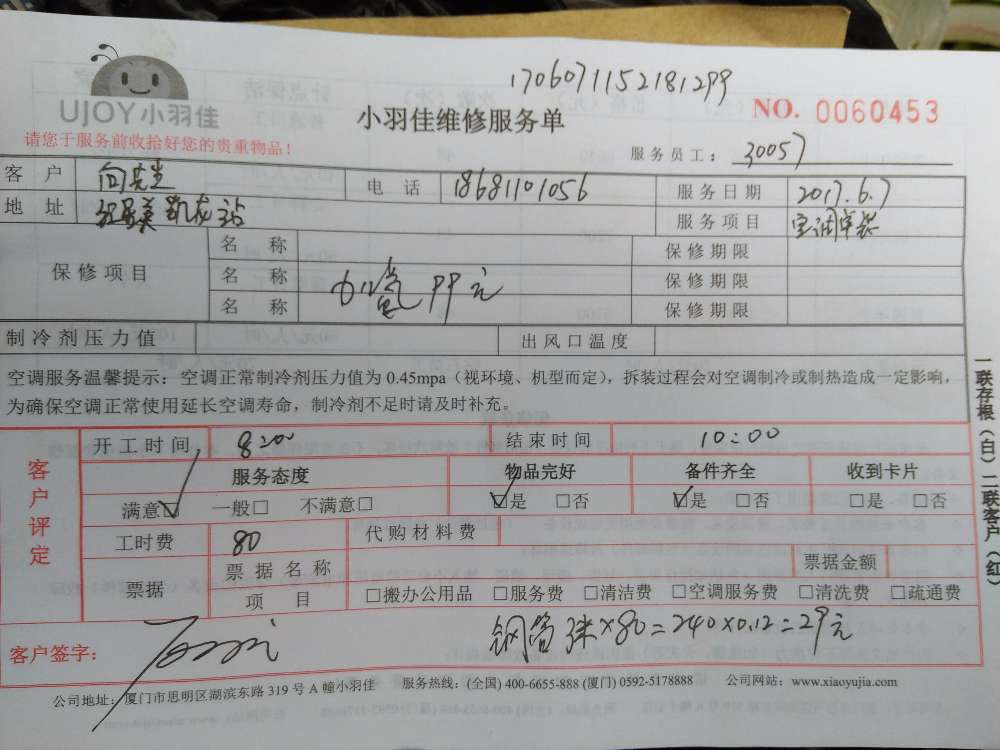 1706071152181299
UJOY小羽佳
小羽佳维修服务单
NO. 0060453
请您于服务前收拾好您的贵重物品！
服务员工： 30057
客 户 向先生 电 话 18681101056 服务日期 2017.6.7
地 址 站 服务项目 空调安装
保修项目 名 称 保修期限
名 称 加氨 99元 保修期限
名 称 保修期限
制冷剂压力值 出风口温度
空调服务温馨提示：空调正常制冷剂压力值为 0.45mpa（视环境、机型而定），拆装过程会对空调制冷或制热造成一定影响，
为确保空调正常使用延长空调寿命，制冷剂不足时请及时补充。
客户评定
开工时间 8:00 结束时间 10:00
服务态度 物品完好 备件齐全 收到卡片
满意☑ 一般□ 不满意□ ☑是 □否 ☑是 □否 □是 □否
工时费 80 代购材料费
票据 票据名称 票据金额
项 目 □搬办公用品 □服务费 □清洁费 □空调服务费 □清洗费 □疏通费
客户签字：
钢管 3米×80=240×0.12=29元
公司地址：厦门市思明区湖滨东路 319 号 A 幢小羽佳 服务热线：(全国) 400-6655-888 (厦门) 0592-5178888 公司网站：www.xiaoyujia.com
一联存根（白）二联客户（红）